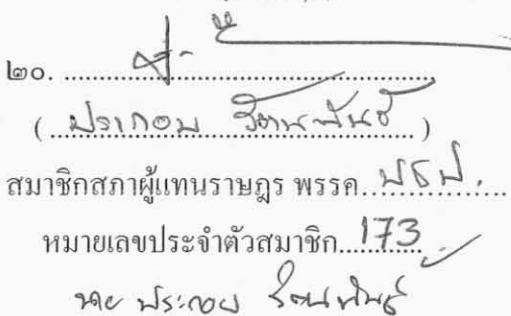 ๒๐. ........................................
(ประกอบ รัตนพันธ์)
สมาชิกสภาผู้แทนราษฎร พรรค ปชป.
หมายเลขประจำตัวสมาชิก 173
นาย ประกอบ รัตนพันธ์